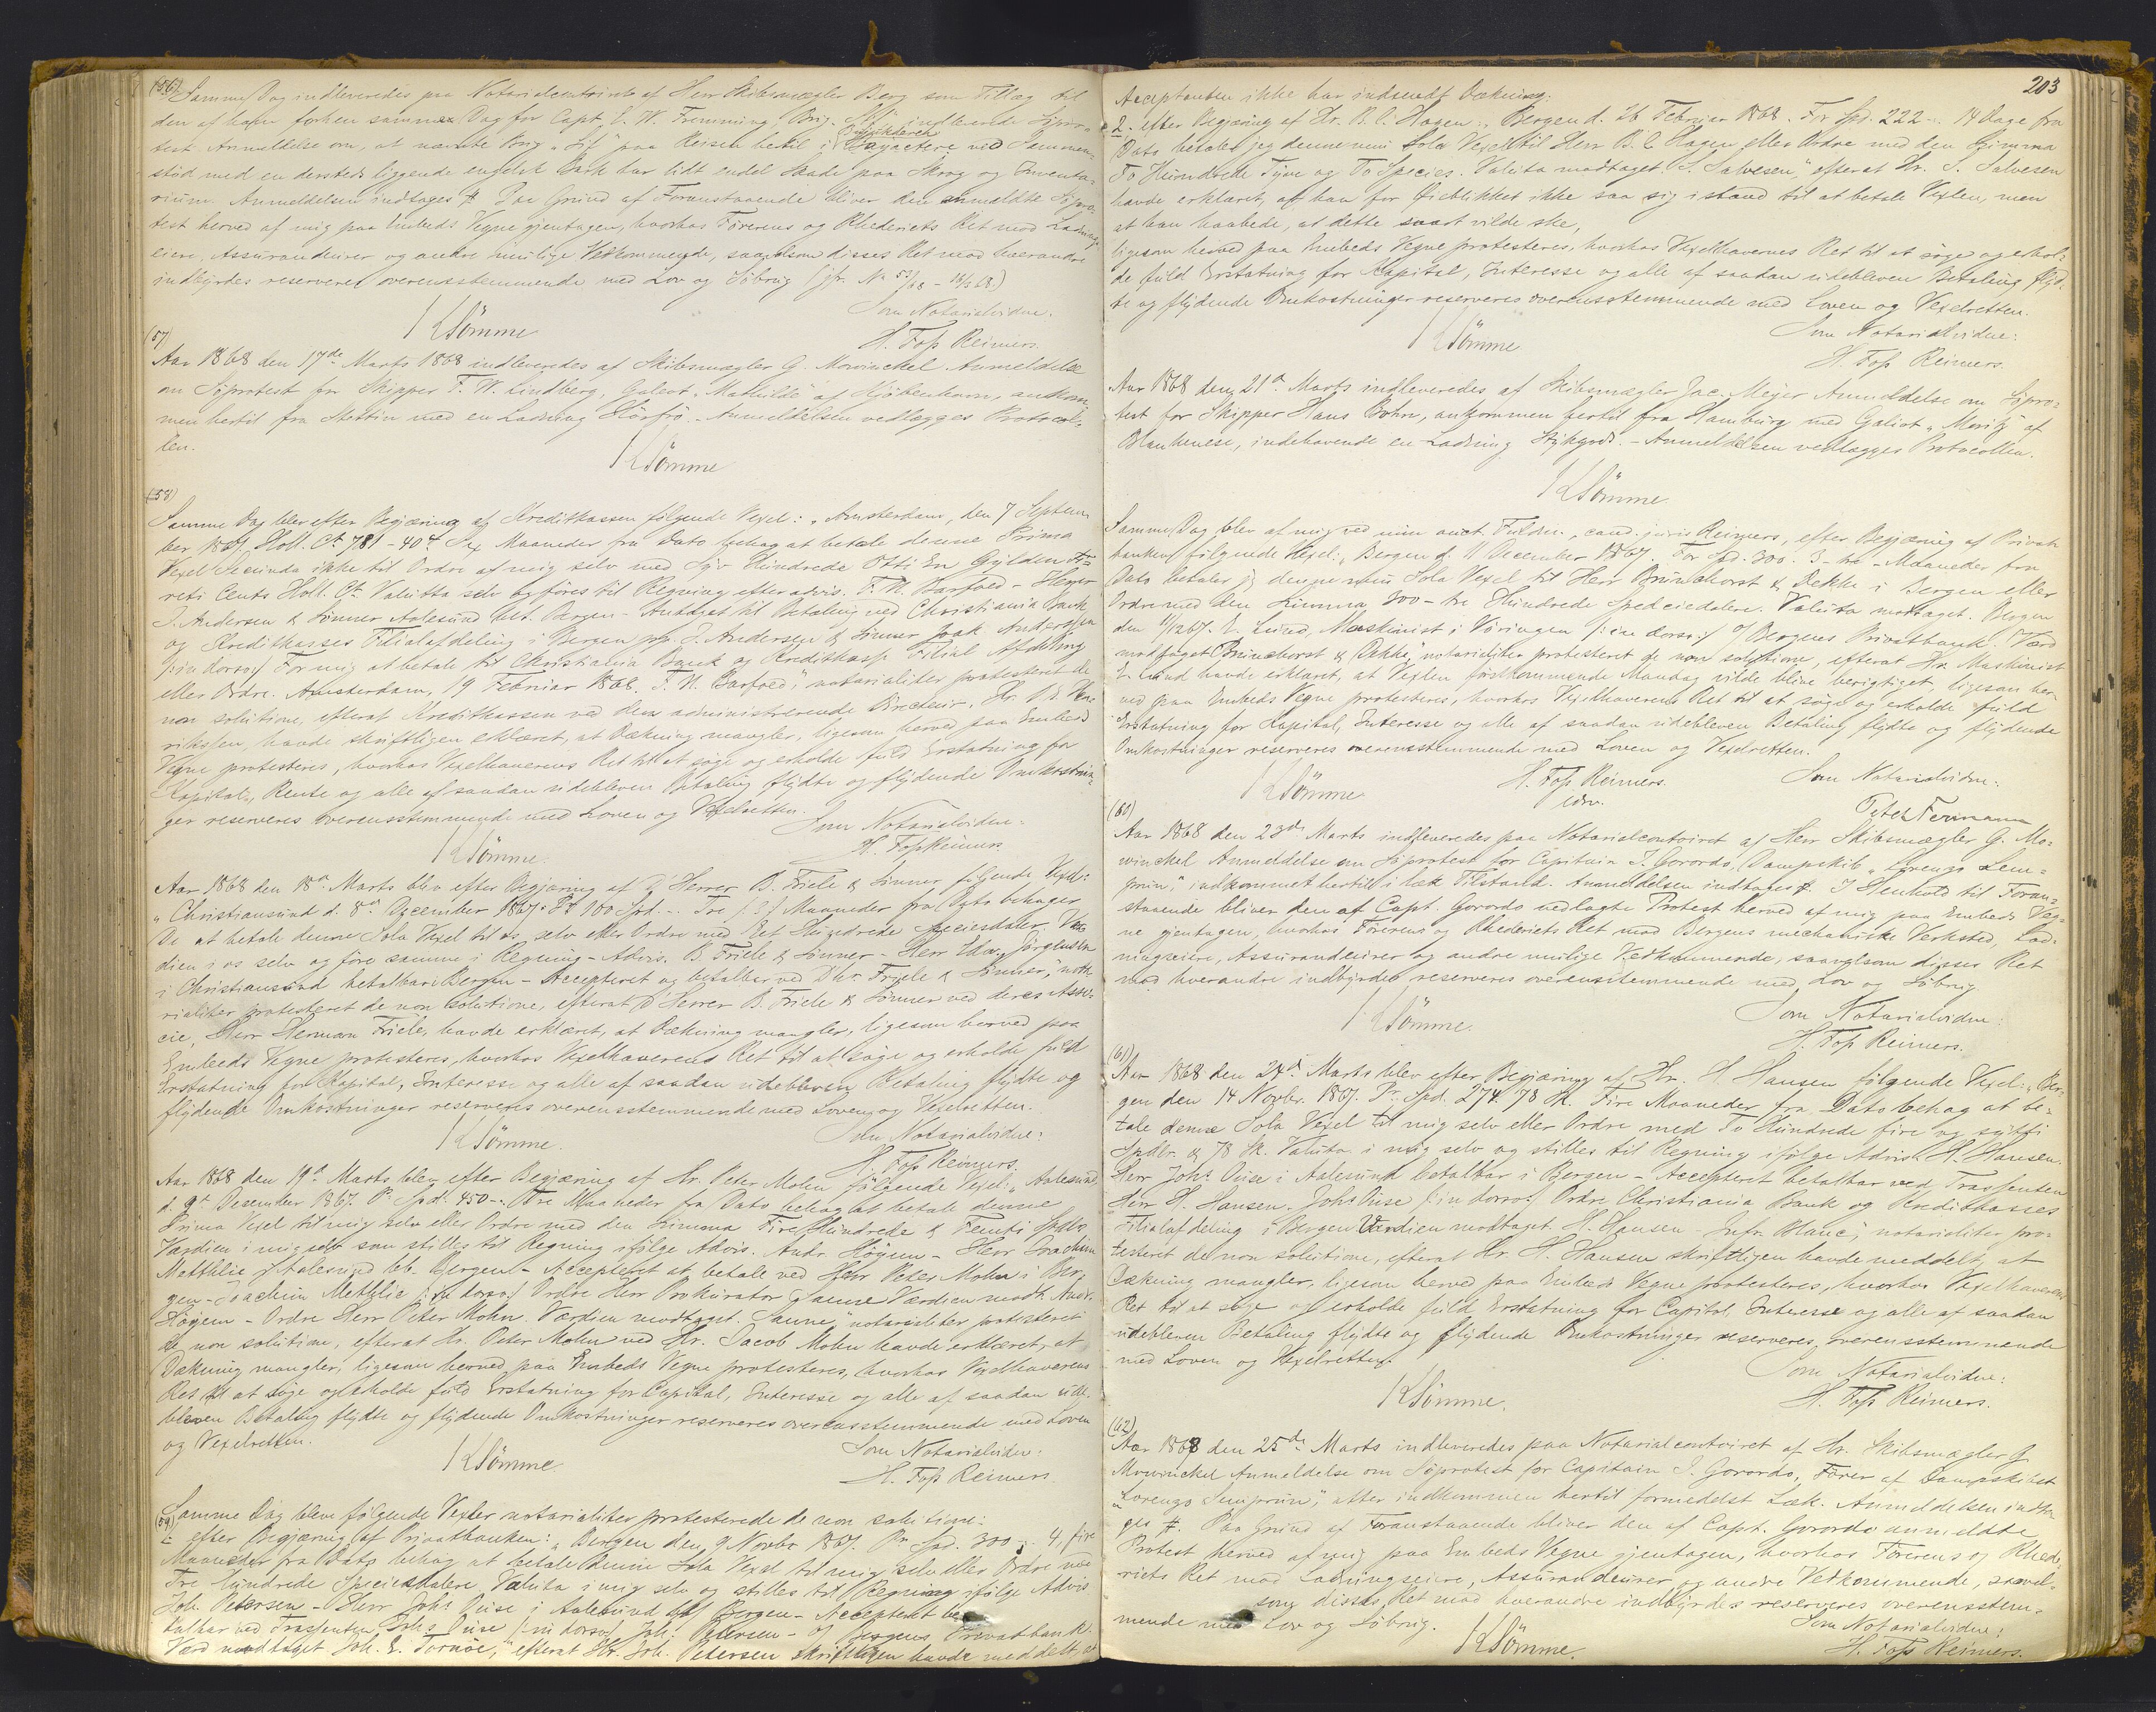 (56) Samme Dag indleveredes paa Notarialcontoiret af Herr Skibsmægler Berg som Tillæg til
den af ham forhen samme Dag for Capt. C. W. Fromming, Brig. "Sif" indleverede Sjøpro=
test Anmeldelse om, at nævnte Brig "Sif" paa Reisen hertil i ved Sammen=
stød med en dersteds liggende engelsk Bark har lidt endel Skade paa Skrog og Inventa=
rium. Anmeldelsen indtages #. Paa Grund af Foranstaaende bliver den anmeldte Sjøpro=
test herved af mig paa Embeds Vegne gjentagen, hvorhos Førerens og Rhederiets Ret mod Ladnings=
eiere, Assurandeurer og andre mulige Vedkommende, saavelsom disses Ret mod hverandre
indbyrdes reserveres overensstemmende med Lov og Søbrug (jfr. No 53/68 - 14/3 68.)
Som Notarialvidne:
K Sömme
H. Foss Reimers.
(57)
Aar 1868 den 17de Marts 1868 indleveredes af Skibsmægler G. Mowinckel Anmeldelse
om Søprotest for Skipper F. W. Lindberg, Galeot "Mathilde" af Kjöbenhavn, ankom=
men hertil fra Stettin med en Ladning Hörfrö. - Anmeldelsen vedlægges Protocol=
len.
K Sömme
(58)
Samme Dag blev efter Begjæring af Kreditkassen følgende Vexel: "Amsterdam, den 7 Septem=
ber 1867. Holl. Ct 781-40 ct. Sex Maaneder fra Dato behag at betale denne Prima
Vexel Secunda ikke til Ordre af mig selv med Syv Hundrede Otti En Gylden Fir=
reti Cents Holl. Ct. Valuta selv og føres til Regning efter advis. F. N. Barfoed - Herrer
J. Andersen & Sønner Aalesund bet. Bergen - Antaget til Betaling ved Christiania Bank
og Kreditkasses Filialafdeling i Bergen pp. J. Andersen & Sønner Joak. Andersen
/: in dorso:/ For mig at betale til Christiania Bank og Kreditkasse Filial Afdeling
eller Ordre. Amsterdam, 19 Februar 1868. F. N. Barfoed", notarialiter protesteret de
non solutione, efterat Kreditkassen ved den administrerende Directeur, Hr. Hen=
riksen, havde skriftligen erklæret, at Dækning mangler, ligesom herved paa Embeds
Vegne protesteres, hvorhos Vexelhaverens Ret til at søge og erholde fuld Erstatning for
Kapital, Rente og alle af saadan udebleven Betaling flydte og flydende Omkostnin=
ger reserveres overensstemmende med Loven og Vexelretten.
Som Notarialvidne:
K Sömme.
H. Foss Reimers
Aar 1868 den 18de Marts blev efter Begjæring af D' Herrer B. Friele & Sønner følgende Vexel:
"Christiansund d. 8de December 1867. Pr 100 Spd. - Tre /3/ Maaneder fra Dato behager
De at betale denne Sola Vexel til os selv eller Ordre med Et Hundrede Speciesdaler. Vær=
dien i os selv og føre samme i Regning - Advis. B. Friele & Sønner - Herr Edv. Jørgensen
i Christiansund betalbar i Bergen - Accepteret og betalbar ved D'hr. Friele & Sønner", nota=
rialiter protesteret de non solutione, efterat D' Herrer B. Friele & Sønner ved deres Asso=
cie, Herr Herman Friele, havde erklæret, at Dækning mangler, ligesom herved paa
Embeds Vegne protesteres, hvorhos Vexelhaverens Ret til at søge og erholde fuld
Erstatning for Kapital, Interesse og alle af saadan udebleven Betaling flydte og
flydende Omkostninger reserveres overensstemmende med Loven og Vexelretten.
Som Notarialvidne:
K Sömme.
H. Foss Reimers.
Aar 1868 den 19de Marts blev efter Begjæring af Hr. Peter Mohn følgende Vexel: "Aalesund,
d. 9de December 1867. Pr Spd. 450 -. Tre Maaneder fra Dato behag at betale denne
Prima Vexel til mig selv eller Ordre med den Summa Fire Hundrede & Femti Spdlr
Værdien i mig selv som stilles til Regning ifølge Advis. Andr. Høyem - Herr Joachim
Methlie i Aalesund bet. Bergen - Accepteret at betale ved Herr Peter Mohn i Ber=
gen - Joachim Methlie /: in dorso:/ Ordre Herr Prokurator Sanne Værdien modt. Andr.
Høyem - Ordre Herr Peter Mohn. Værdien modtaget. Sanne", notarialiter protesteret
de non solutione, efterat Hr. Peter Mohn ved Hr. Jacob Mohn havde erklæret, at
Dækning mangler, ligesom herved paa Embeds Vegne protesteres, hvorhos Vexelhaverens
Ret til at søge og erholde fuld Erstatning for Capital, Interesse og alle af saadan ude=
bleven Betaling flydte og flydende Omkostninger reserveres overensstemmende med Loven
og Vexelretten.
Som Notarialvidne:
K Sömme
H. Foss Reimers.
(59) Samme Dag bleve følgende Vexler notarialiter protesterede de non solutione:
1. efter Begjæring af Privatbanken: "Bergen den 9 Novbr 1867. Pr. Spd. 300 - 4, fire
Maaneder fra Dato behag at betale denne Sola Vexel til mig selv eller Ordre med
Tre Hundrede Speciesdalere Valuta i mig selv og stilles til Regning ifølge Advis
Joh. Petersen - Herr Johs Duse i Aalesund bet. Bergen - Accepteret be=
talbar ved Trassenten Johs Duse /: in dorso:/ Joh. Petersen - Til Bergens Privatbank.
Værd modtaget Joh. E. Tornöe," efterat Hr. Joh. Petersen skriftligen havde meddelt, at
203
Acceptanten ikke har indsendt Dækning.
2. efter Begjæring af Hr. R. C. Hagen: "Bergen d. 26 Februar 1868. For Spd. 222 - 14 Dage fra
Dato betaler jeg denne min Sola Vexel til Herr R. C. Hagen eller Ordre med den Summa
To Hundrede Tyve og To Species. Valuta modtaget. S. Salvesen", efterat Hr. S. Salvesen
havde erklæret, at han for Øieblikket ikke saa sig istand til at betale Vexlen, men
at han haabede, at dette snart vilde ske,
ligesom herved paa Embeds Vegne protesteres, hvorhos Vexelhavernes Ret til at søge og erhol=
de fuld Erstatning for Kapital, Interesse og alle af saadan udebleven Betaling flyd=
te og flydende Omkostninger reserveres overensstemmende med Loven og Vexelretten.
Som Notarialvidne:
K Sömme
H. Foss Reimers.
Aar 1868 den 21de Marts indleveredes af Skibsmægler Jac. Meyer Anmeldelse om Søpro=
test for Skipper Hans Bohn, ankommen hertil fra Hamburg med Galiot "Moritz" af
Blankenese, indehavende en Ladning Stykgods. - Anmeldelsen vedlægges Protocollen.
K Sömme
Samme Dag blev af mig ved min auct. Fuldm., cand. juris Reimers, efter Begjæring af Privat=
banken følgende Vexel: "Bergen d. 11 December 1867. For Spd. 300. 3 - tre - Maaneder fra
Dato betaler jeg denne min Sola Vexel til Herr Brunchorst & Dekke i Bergen eller
Ordre med den Summa 300 - tre Hundrede Speciedalere. Valuta modtaget. Bergen
den 11/12 67. E. Lund, Maskinist i Vöringen /: in dorso:/ Til Bergens Privatbank. Værd
modtaget Brunchorst & Dekke," notarialiter protesteret de non solutione, efterat Hr. Maskinist
E. Lund havde erklæret, at Vexlen førstkommende Mandag vilde blive berigtiget, ligesom her=
ved paa Embeds Vegne protesteres, hvorhos Vexelhaverens Ret til at søge og erholde fuld
Erstatning for Kapital, Interesse og alle af saadan udebleven Betaling flydte og flydende
Omkostninger reserveres overensstemmende med Loven og Vexelretten.
K Sömme
H. Foss Reimers.
Som Notarialvidne:
(60)
Aar 1868 den 23de Marts indleveredes paa Notarialcontoiret af Herr Skibsmægler G. Mo=
winckel Anmeldelse om Søprotest for Capitain J. Gorordo, Dampskib "Lorenzo Sem=
prun", indkommet hertil i læk Tilstand. Anmeldelsen indtages #. I Henhold til Foran=
staaende bliver den af Capt. Gorordo nedlagte Protest herved af mig paa Embeds Veg=
ne gjentagen, hvorhos Førerens og Rhederiets Ret mod Bergens mechaniske Verksted, Lad=
ningseiere, Assurandeurer og andre mulige Vedkommende, saavelsom disses Ret
mod hverandre indbyrdes reserveres overensstemmende med Lov og Søbrug.
Som Notarialvidne:
K Sömme.
H. Foss Reimers.
(61)
Aar 1868 den 24de Marts blev efter Begjæring af Hr. H. Hansen følgende Vexel: "Ber=
gen den 14 Novbr. 1867. Pr. Spd. 274. 78 Sk. Fire Maaneder fra Dato behag at be=
tale denne Sola Vexel til mig selv eller Ordre med To Hundrede fire og sytti
Spdlr. & 78 Sk. Valuta i mig selv og stilles til Regning ifølge Advis. H. Hansen.
Herr Johs Duse i Aalesund betalbar i Bergen - Accepteret betalbar ved Trassenten
Herr H. Hansen. Johs Duse /: in dorso:/ Ordre Christiania Bank og Kreditkasses
Filialafdeling i Bergen Værdien modtaget. H. Hansen - Jufr. Blanc", notarialiter pro=
testeret de non solutione, efterat Hr. H. Hansen skriftligen havde meddelt, at
Dækning mangler, ligesom herved paa Embeds Vegne protesteres, hvorhos Vexelhaverens
Ret til at søge og erholde fuld Erstatning for Capital, Interesse og alle af saadan
udebleven Betaling flydte og flydende Omkostninger reserveres overensstemmende
med Loven og Vexelretten.
Som Notarialvidne:
K Sömme.
H. Foss Reimers.
(62)
Aar 1868 den 25de Marts indleveredes paa Notarialcontoiret af Hr. Skibsmægler G.
Mowinckel Anmeldelse om Søprotest for Capitain J. Gorordo, Fører af Dampskibet
"Lorenzo Semprun", atter indkommen hertil formedelst Læk. Anmeldelsen indta=
ges #. Paa Grund af Foranstaaende bliver den af Capt. Gorordo anmeldte
Protest herved af mig paa Embeds Vegne gjentagen, hvorhos Førerens og Rhede=
riets Ret mod Ladningseiere, Assurandeurer og andre Vedkommende, saavel=
som disses Ret mod hverandre indbyrdes reserveres overensstem=
mende med Lov og Søbrug.
Som Notarialvidne:
K Sömme.
H. Foss Reimers.